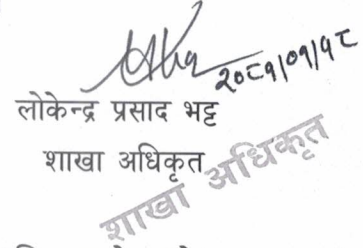 २०८१/०१/१८
लोकेन्द्र प्रसाद भट्ट
शाखा अधिकृत
शाखा अधिकृत